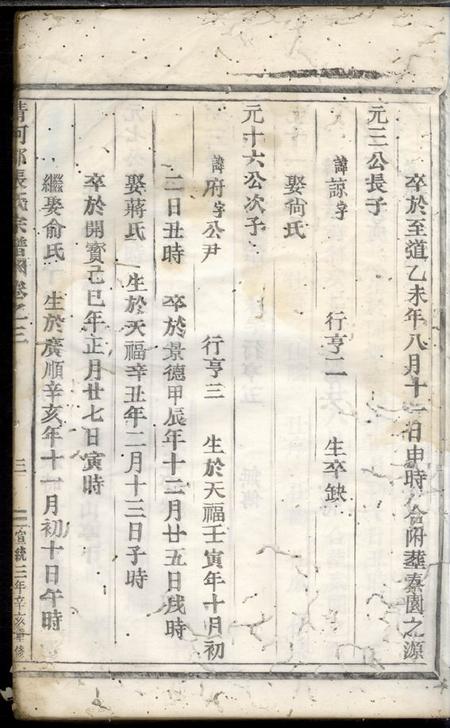 卒於至道乙未年八月十一日申時 合附塟寮園之源
元三公長子
諱諒字 行亨二 生卒缺
娶尙氏
元十六公次子
諱府字公尹 行亨三 生於天福壬寅年十月初
二日丑時 卒於景德甲辰年十二月廿五日戌時
娶蔣氏 生於天福辛丑年二月十三日子時
卒於開寳己巳年正月廿七日寅時
繼娶俞氏 生於廣順辛亥年十一月初十日午時
清河郡張氏宗譜 卷之三 三 宣統三年辛亥重修